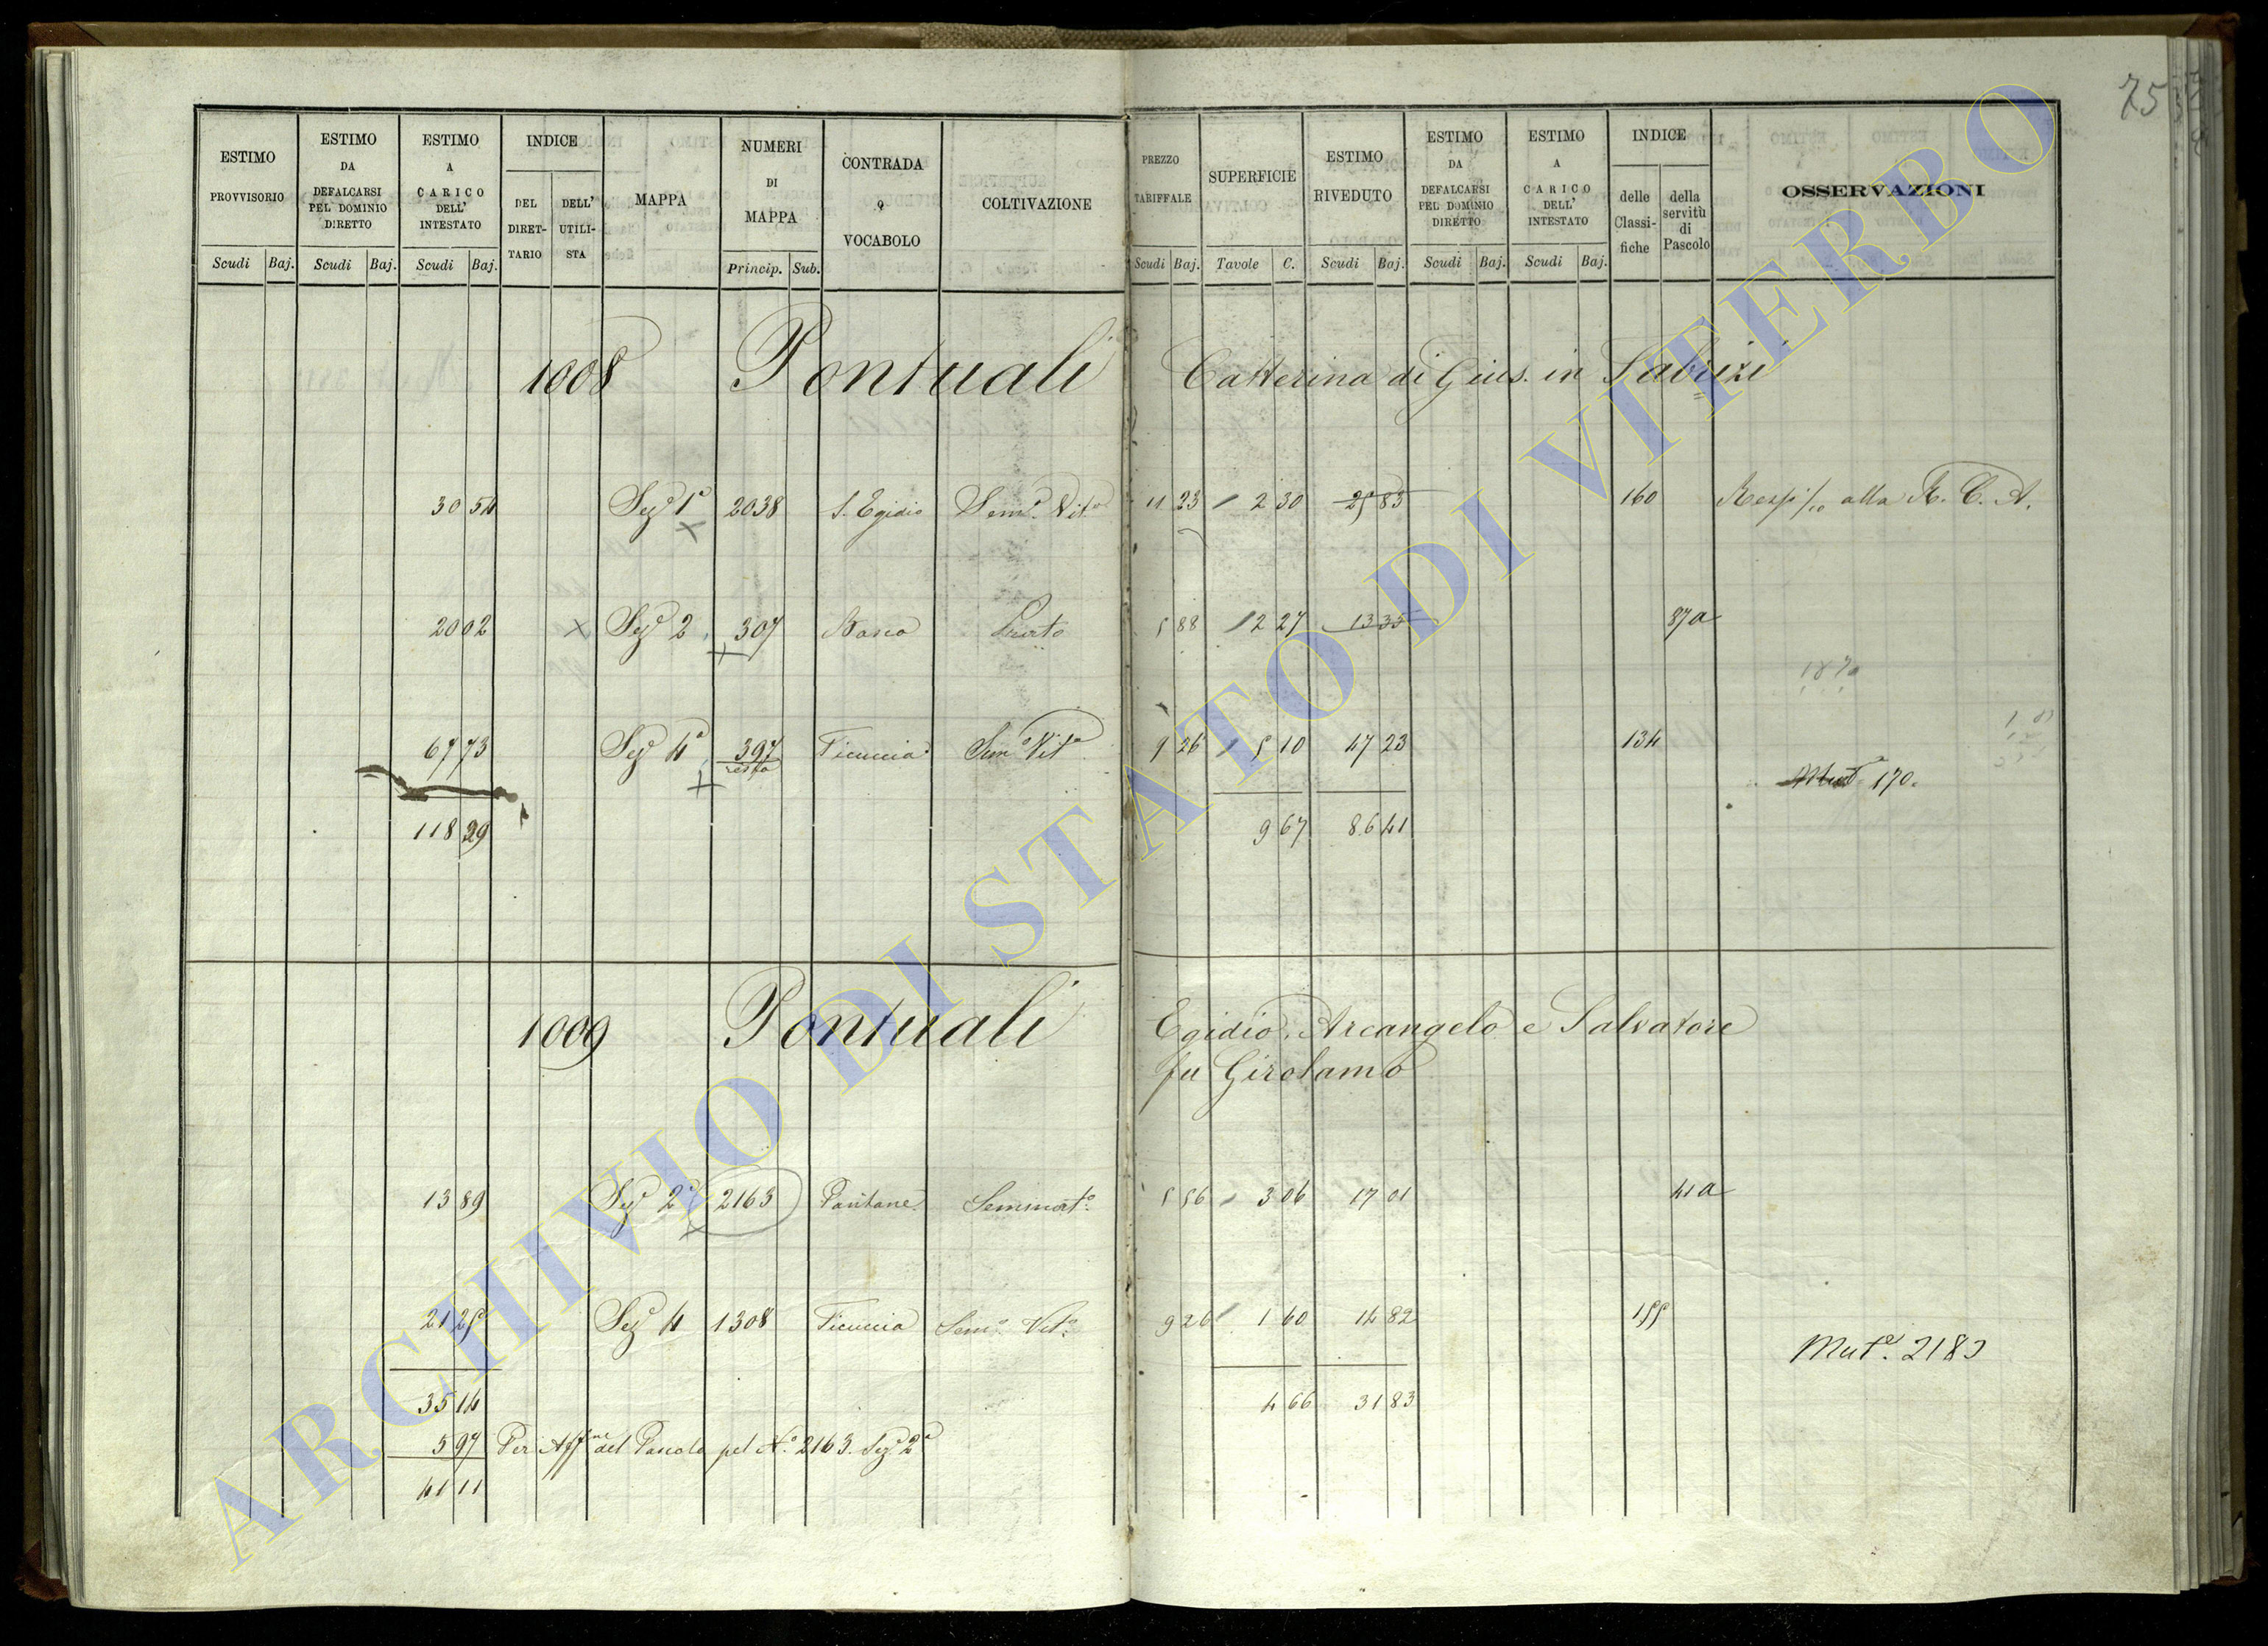 75
ESTIMO PROVVISORIO
ESTIMO DA DEFALCARSI PEL DOMINIO DIRETTO
ESTIMO A CARICO DELL' INTESTATO
INDICE
DEL DIRET-TARIO
DELL' UTILI-STA
MAPPA
NUMERI DI MAPPA
CONTRADA O VOCABOLO
COLTIVAZIONE
PREZZO TARIFFALE
SUPERFICIE
ESTIMO RIVEDUTO
ESTIMO DA DEFALCARSI PEL DOMINIO DIRETTO
ESTIMO A CARICO DELL' INTESTATO
INDICE
delle Classi-fiche
della servitù di Pascolo
OSSERVAZIONI
Scudi Baj. Scudi Baj. Scudi Baj. Princip. Sub. Scudi Baj. Tavole C. Scudi Baj. Scudi Baj. Scudi Baj.
1008 Pontuali Catterina di Gius. in Sabuzi
30 54 Sez.e 1a 2038 S. Egidio Sem.o Vit.o 11 23 2 30 25 83 160 alla R. C. A.
20 02 Sez.e 2 307 Prato 5 88 2 27 13 35 37a
1870
67 73 Sez.e 4a 397 resta Ficuccia Sem.o Vit.o 9 26 5 10 47 23 134
Mut.a 170.
118 29 9 67 86 41
1009 Pontuali Egidio, Arcangelo e Salvatore
fu Girolamo
13 89 Sez.e 2a 2163 Pantane Seminat.o 5 56 3 06 17 01 41a
21 25 Sez.e 4 1308 Ficuccia Sem.o Vit.o 9 26 1 60 14 82 155
Mut.a 2183
35 14 4 66 31 83
5 97 Per Aff.ne del Pascolo pel N.o 2163. Sez.e 2a
41 11
ARCHIVIO DI STATO DI VITERBO